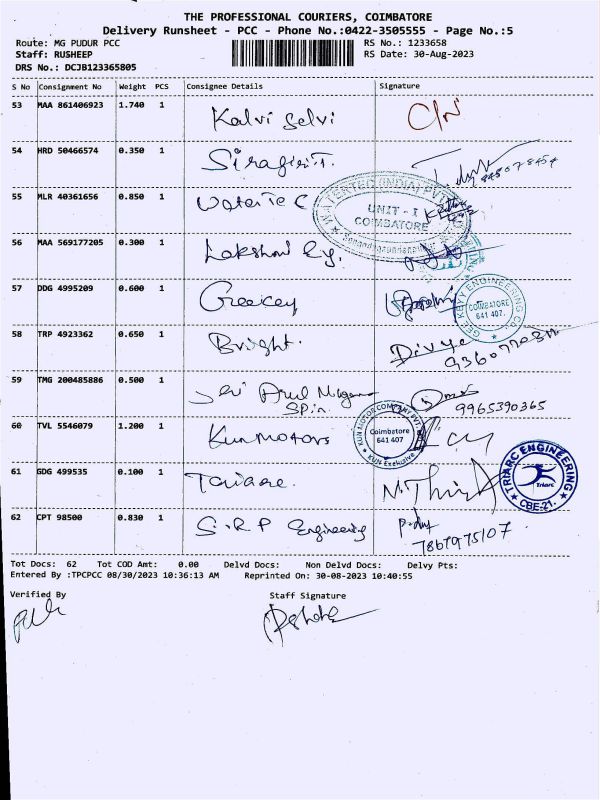 THE PROFESSIONAL COURIERS, COIMBATORE
Delivery Runsheet - PCC - Phone No.:0422-3505555 - Page No.:5
Route: MG PUDUR PCC RS No.: 1233658
Staff: RUSHEEP RS Date: 30-Aug-2023
DRS No.: DCJB123365805
S No Consignment No Weight PCS Consignee Details Signature
53 MAA 861406923 1.740 1 Kalvi Selvi C/N
54 HRD 50466574 0.350 1
55 MLR 40361656 0.850 1 Water Te C
UNIT - I
COIMBATORE
56 MAA 569177205 0.300 1 Lakshmi
57 DDG 4995209 0.600 1
GEE KEYY ENGINEERING CO.
COIMBATORE
641 407.
58 TRP 4923362 0.650 1 Bright. Divya
59 TMG 200485886 0.500 1 Sri Arul Spin 9965390365
60 TVL 5546079 1.200 1 Kun Motors
KUN MOTOR COMPANY PVT.
Coimbatore
641 407
KUN Exclusive
61 GDG 499535 0.100 1
TRIARC ENGINEERING
Triarc
CBE-21.
62 CPT 98500 0.830 1 S.R.P Engineering
7867975107
Tot Docs: 62 Tot COD Amt: 0.00 Delvd Docs: Non Delvd Docs: Delvy Pts:
Entered By :TPCPCC 08/30/2023 10:36:13 AM Reprinted On: 30-08-2023 10:40:55
Verified By Staff Signature